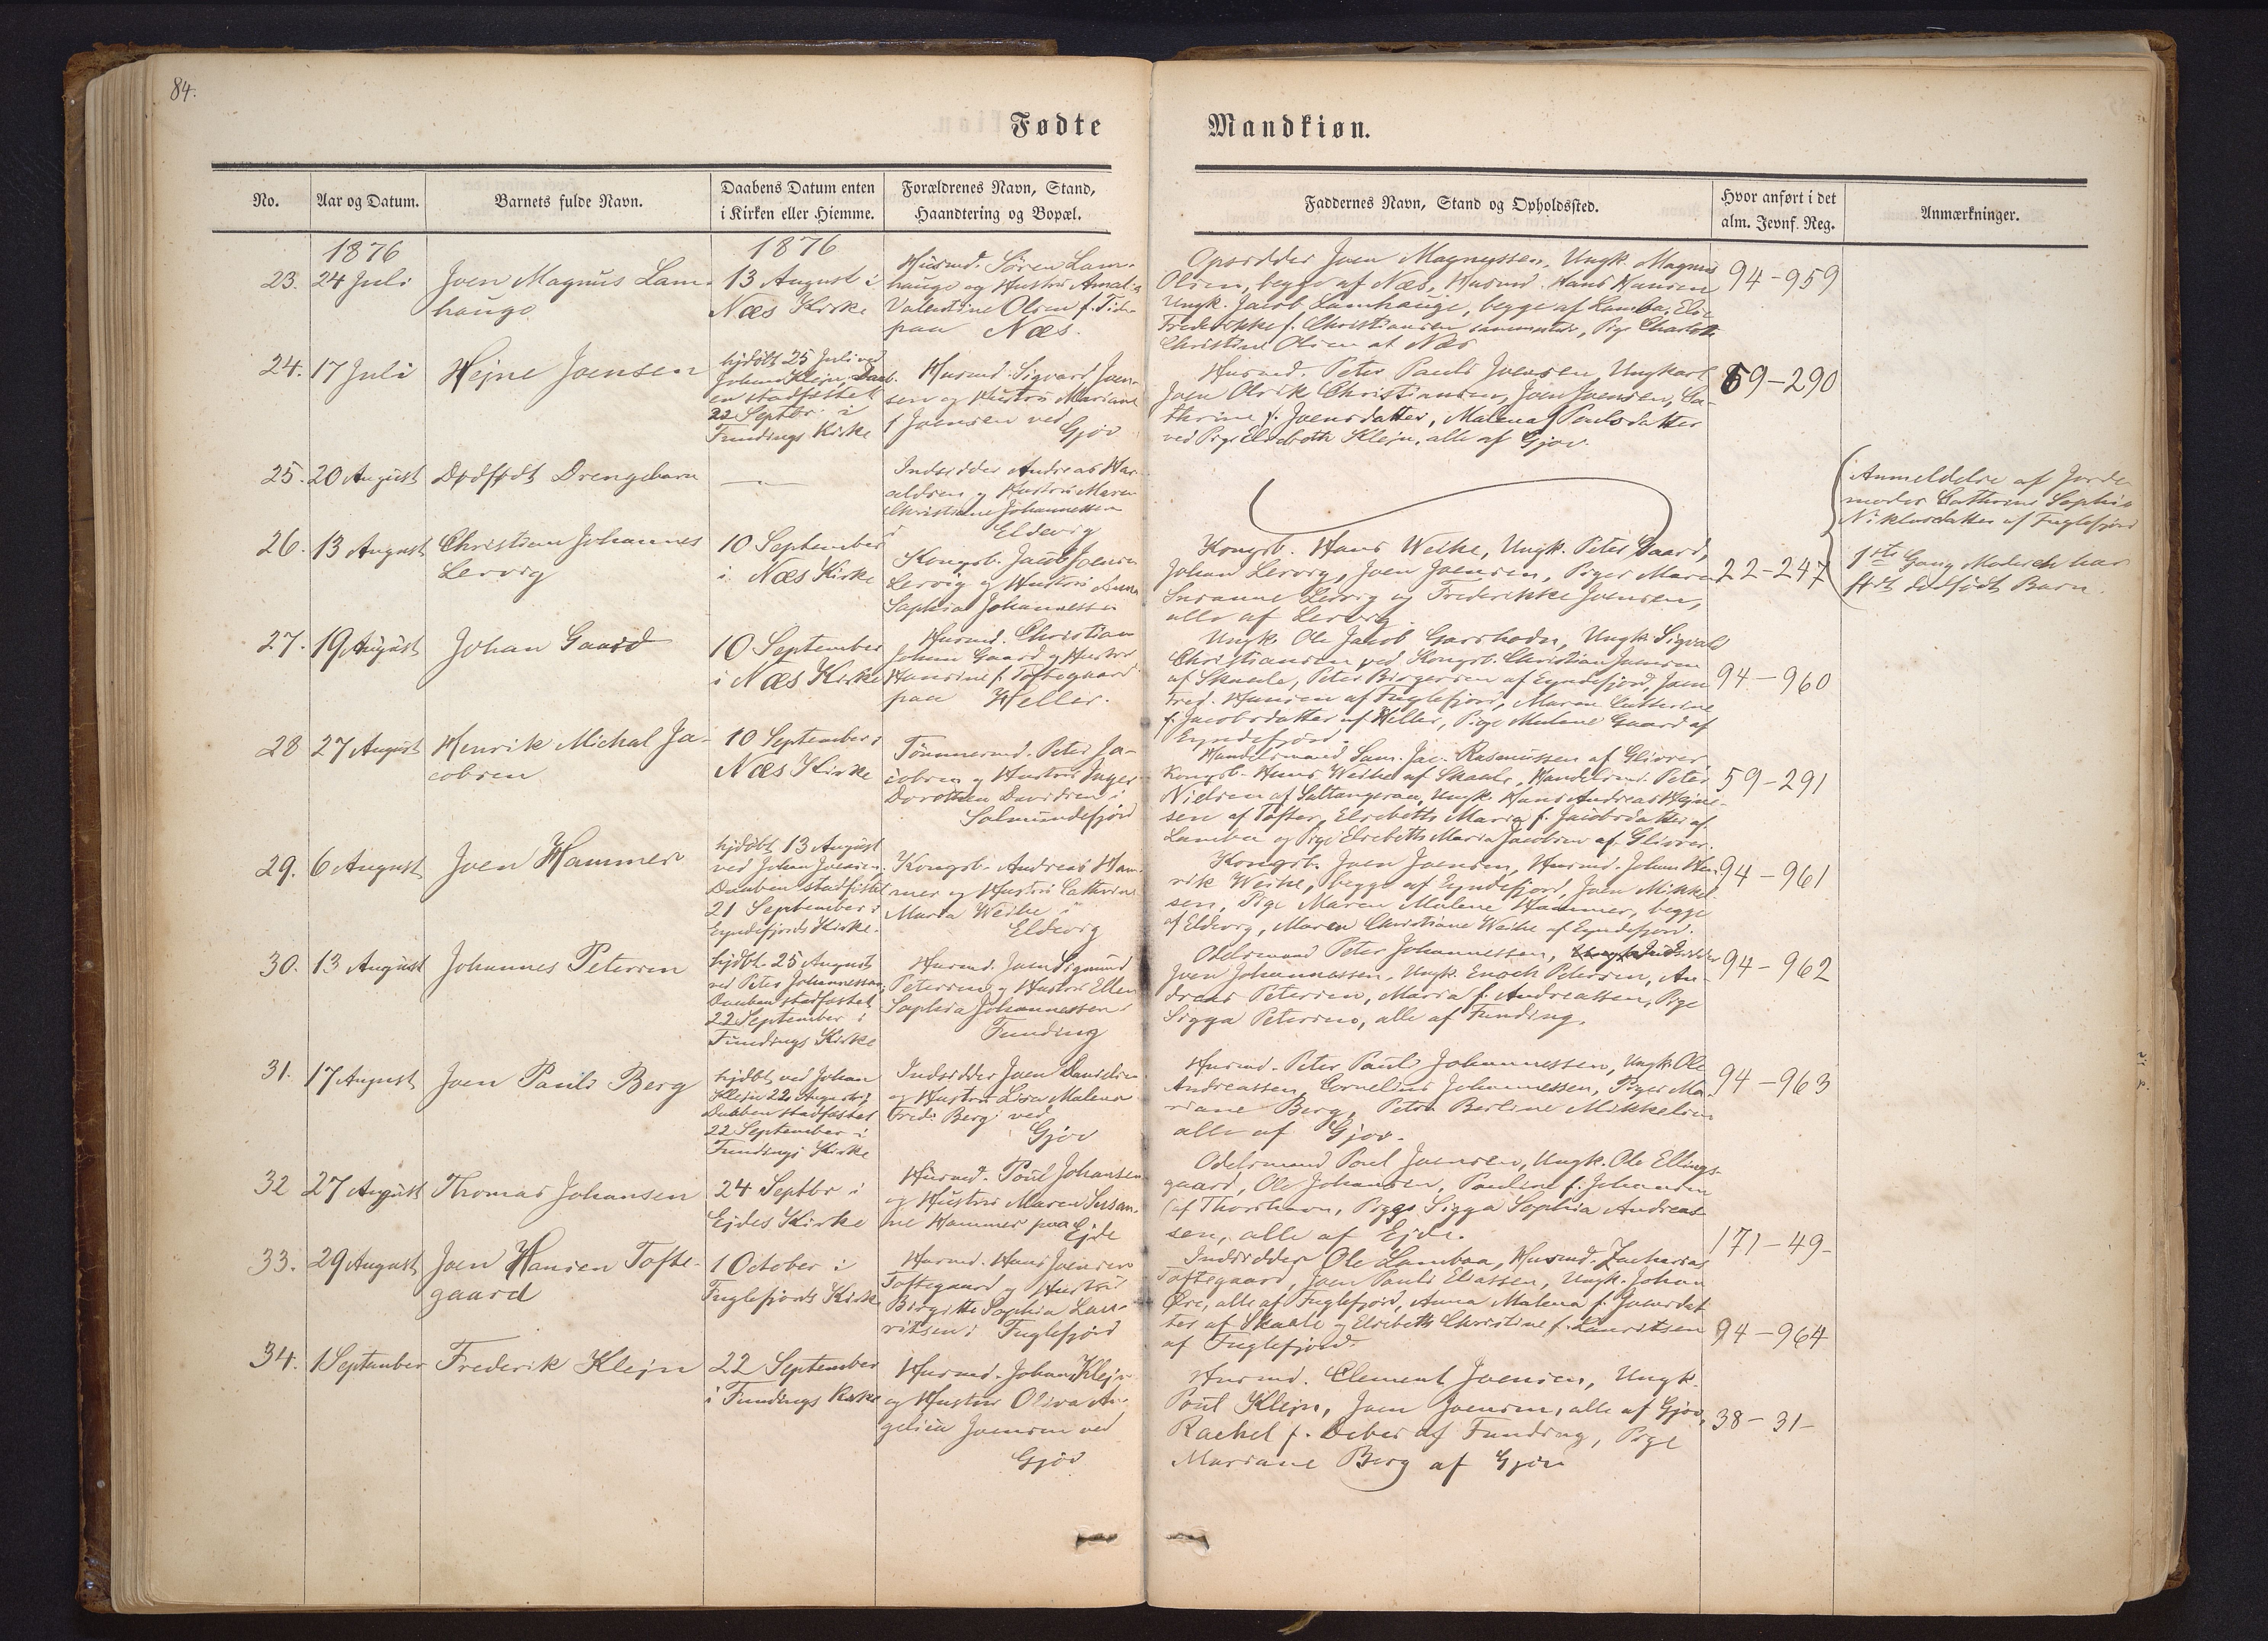 84.
Fødte
Mandkiøn.
No.
Aar og Datum.
Barnets fulde Navn.
Daabens Datum enten
i Kirken eller Hiemme.
Forældrenes Navn, Stand,
Haandtering og Bopæl.
Faddernes Navn, Stand og Opholdssted.
Hvor anført i det
alm. Jevnf. Reg.
Anmærkninger.
1876
1876
23.
24 Juli
Joen Magnus Lam-
hauge
13 August i
Næs Kirke
Husmd. Sören Lam-
hauge og Hustru Amalia
Valentine Olsen f.
paa Næs.
Opsidder Joen Magnussen, Ungk. Magnus
Olsen, begge af Næs, Husmd. Hans Hansen
Ungk. Jacob Lamhauge, begge af Lamba, Else
Frederikke f. Christiansen sammested, Pige Charlotte
Christine Olsen at Næs
94-959
24.
17 Juli
Hejne Joensen
hjdöbt 25 Juli ved
Johan Klejn, Daab-
en stadfæstet
22 Septbr. i
Fundings Kirke
Husmd. Sigvard Joen-
sen og Hustru Mariane
f Joensen ved
Gjov
Husmd. Peter Pauli Joensen, Ungkarl
Joen Olrik Christiansen, Joen Joensen, Ca-
thrine f. Joensdatter, Malena Poulsdatter
ved Pige Elsebeth Klejn, alle af Gjov.
59-290
25.
20 August
Dødfødt Drengebarn
—
Indsidder Andreas Har-
aldsen og Hustru Maren
Christiane Johannessen
i Eldevig
Anmeldelse af Jorde-
moder Cathrine Sophie
Niklasdatter af Fuglefjord
1ste Gang Moderen har
født dødfødt Barn.
26.
13 August
Christian Johannes
Lervig
10 September
i Næs Kirke
Kongsb. Jacob Joensen
Lervig og Hustru Anna
Sophia Johannessen
Kongsb. Hans Weihe, Ungk. Peter Gaard,
Johan Lervig, Joen Joensen, Piger Maren
Susanne Lervig og Frederikke Joensen,
alle af Lervig.
22-247
27.
19 August
Johan Gaard
10 September
i Næs Kirke
Husmd. Christian
Johan Gaard og Hustru
Hansine f. Toftegaard
paa Heller.
Ungk. Ole Jacob Garshodn, Ungk. Sigvald
Christiansen ved Kongsb. Christian Joensen
af Skaale, Peter Birgersen af Eyndefjord, Joen
Fred. Hansen af Fuglefjord, Maren Cathrine
f. Jacobsdatter af Heller, Pige Malene Gaard af
Eyndefjord.
94-960
28
27 August
Henrik Michal Ja-
cobsen
10 September i
Næs Kirke
Tömmermd. Peter Ja-
cobsen og Hustru Inger
Dorothea Davidsen i
Solmundefjord
Handelsmand Sam. Jac. Rasmussen af Glivrer,
Kongsb. Hans Weihe af Skaale, Handelsmd. Peter
Nielsen af Saltangeraa, Ungk. Hans Andreas Hejne-
sen af Tofter, Elsebeth Maria f. Jacobsdatter af
Lamba og Pige Elsebeth Maria Jacobsen af Glivrer.
59-291
29.
6 August
Joen Hammer
hjdöbt 13 August
ved Johan Joensen,
Daaben stadfæstet
21 September i
Eyndefjords Kirke.
Kongsb. Andreas Ham-
mer og Hustru Cathrine
Maria Weihe i
Eldevig
Kongsb. Joen Joensen, Husmd. Johan Hen-
rik Weihe, begge af Eyndefjord, Joen Mikkel-
sen, Pige Maren Malene Hammer, begge
af Eldevig, Maren Christiane Weihe af Eyndefjord.
94-961
30.
13 August
Johannes Petersen
hjdbt. 25 August
ved Peter Johannessen,
Daaben stadfæstet
22 September i
Fundings Kirke
Husmd. Joen Sigmund
Petersen og Hustru Ellen
Sophia Johannessen i
Funding
Odelsmand Peter Johannessen, Indsidder
Joen Johannessen, Ungk. Enoch Petersen, An-
dreas Petersen, Maria f. Andreassen, Pige
Sigga Petersen, alle af Funding.
94-962
31.
17 August
Joen Pauli Berg
hjdbt. ved Johan
Klejn 22 August,
Daaben stadfæstet
22 September i
Fundings Kirke
Indsidder Joen Danielsen
og Hustru Lisa Malena
Fred. Berg ved
Gjov
Husmd. Peter Paul Johannessen, Ungk. Ole
Andreassen, Cornelius Johannessen, Piger Ma-
riane Berg, Petra Berline Mikkelsen
alle af Gjov.
94-963
32
27 August
Thomas Johansen
24 Septbr i
Ejdes Kirke
Husmd. Poul Johansen
og Hustru Maren Susan-
ne Hammer paa Ejde
Odelsmand Poul Joensen, Ungk. Ole Ellings-
gaard, Ole Johansen, Pauline f. Johansen
af Thorshavn, Pige Sigga Sophia Andreas-
sen, alle af Ejde.
171-49-
33.
29 August
Joen Hansen Tofte-
gaard
1 October i
Fuglefjords Kirke
Husmd. Hans Joensen
Toftegaard og Hustru
Birgitte Sophia Lau-
ritsen i Fuglefjord
Indsidder Ole Lambaa, Husmd. Zacharias
Toftegaard, Joen Pauli Eliassen, Ungk. Johan
Øre, alle af Fuglefjord, Anna Malena f. Joensdat-
ter af Skaale og Elsebeth Christine f. Lauritsen
af Fuglefjord.
94-964
34.
1 September
Frederik Klejn
22 September
i Fundings Kirke
Husmd. Johan Klejn
og Hustru Oliva An-
gelica Joensen ved
Gjov
Husmd. Clement Joensen, Ungk.
Poul Klejn, Joen Joensen, alle af Gjov,
Rachel f. Debes af Funding, Pige
Mariane Berg af Gjov
38-31-